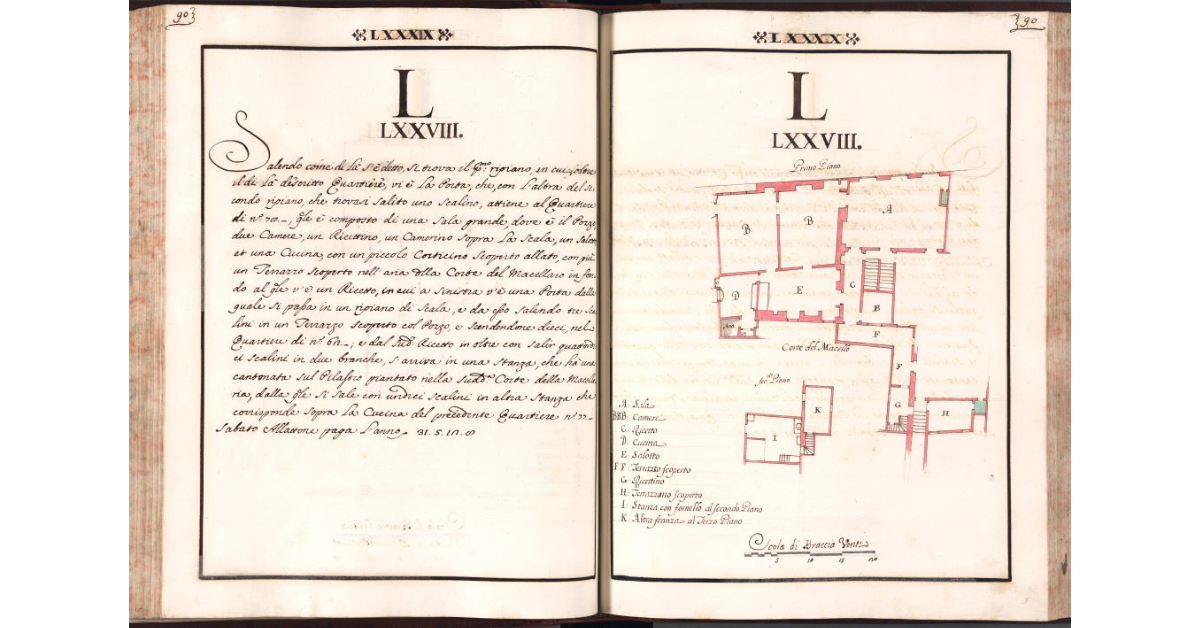 90
LXXXIX
L
LXXVIII.
Salendo come di là s'è detto, si trova il p.º ripiano, in cui, oltre
il di là descritto Quartiere, vi è la Porta, che, con l'altra del se
condo ripiano, che trovasi salito uno scalino, attiene al Quartiere
di n.º 78 è composto di una Sala grande, dove è il Pozzo,
due Camere, un Ricettino, un Camerino sopra la Scala, un Salotto
et una Cucina, con un piccolo Corticino Scoperto allato, con più
un Terrazzo Scoperto nell'aria della Corte del Macellaro in fon
do al v'è un Ricetto, in cui a sinistra v'è una Porta dalla
quale si passa in un ripiano di Scala, e da esso salendo tre sca
lini in un Terrazzo Scoperto col Pozzo, e scendendone dieci, nel
Quartiere di n.º e dal Sud.º Ricetto in oltre con salir quattordi
ci Scalini in due branche, s'arriva in una Stanza, che hà una
cantonata sul Pilastro piantato nella Corte della Macella
ria, dalla si sale con undici scalini in altra Stanza che
corrisponde sopra la Cucina del precedente Quartiere n.º 77
Sabato Allattone paga l'anno
90
LXXXX
L
LXXVIII.
Primo Piano
B
B
A
C
D
E
B
F
Corte del Macello
F
G
H
Sec.º Piano
K
I
A Sala
BBB Camere
C Ricetto
D Cucina
E Salotto
FF Terrazzo scoperto
G Ricettino
H Terrazzano scoperto
I Stanza con fornello al secondo Piano
K Altra stanza al Terzo Piano
Scala di Braccia Venti
5 10 15 20